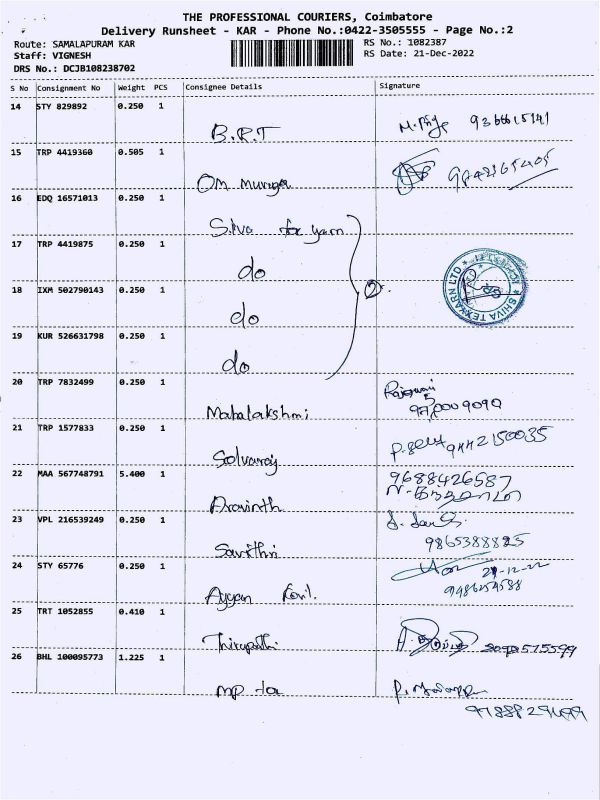 THE PROFESSIONAL COURIERS, Coimbatore
Delivery Runsheet - KAR - Phone No.:0422-3505555 - Page No.:2
Route: SAMALAPURAM KAR
RS No.: 1082387
Staff: VIGNESH
RS Date: 21-Dec-2022
DRS No.: DCJB108238702
S No Consignment No Weight PCS Consignee Details Signature
14 STY 829892 0.250 1
B.R.T
15 TRP 4419360 0.505 1
Om muruga
16 EDQ 16571013 0.250 1
Shiva Tex yarn
17 TRP 4419875 0.250 1
do
18 IXM 502790143 0.250 1
do
SHIVA TEXYARN LTD
19 KUR 526631798 0.250 1
do
20 TRP 7832499 0.250 1
Mahalakshmi
21 TRP 1577833 0.250 1
Selvaraj
22 MAA 567748791 5.400 1
9688426587
Aravinth
23 VPL 216539249 0.250 1
9865388825
Savithri
24 STY 65776 0.250 1
21-12-22
Ayyan Kovil.
25 TRT 1052855 0.410 1
Thirupathi
26 BHL 100095773 1.225 1